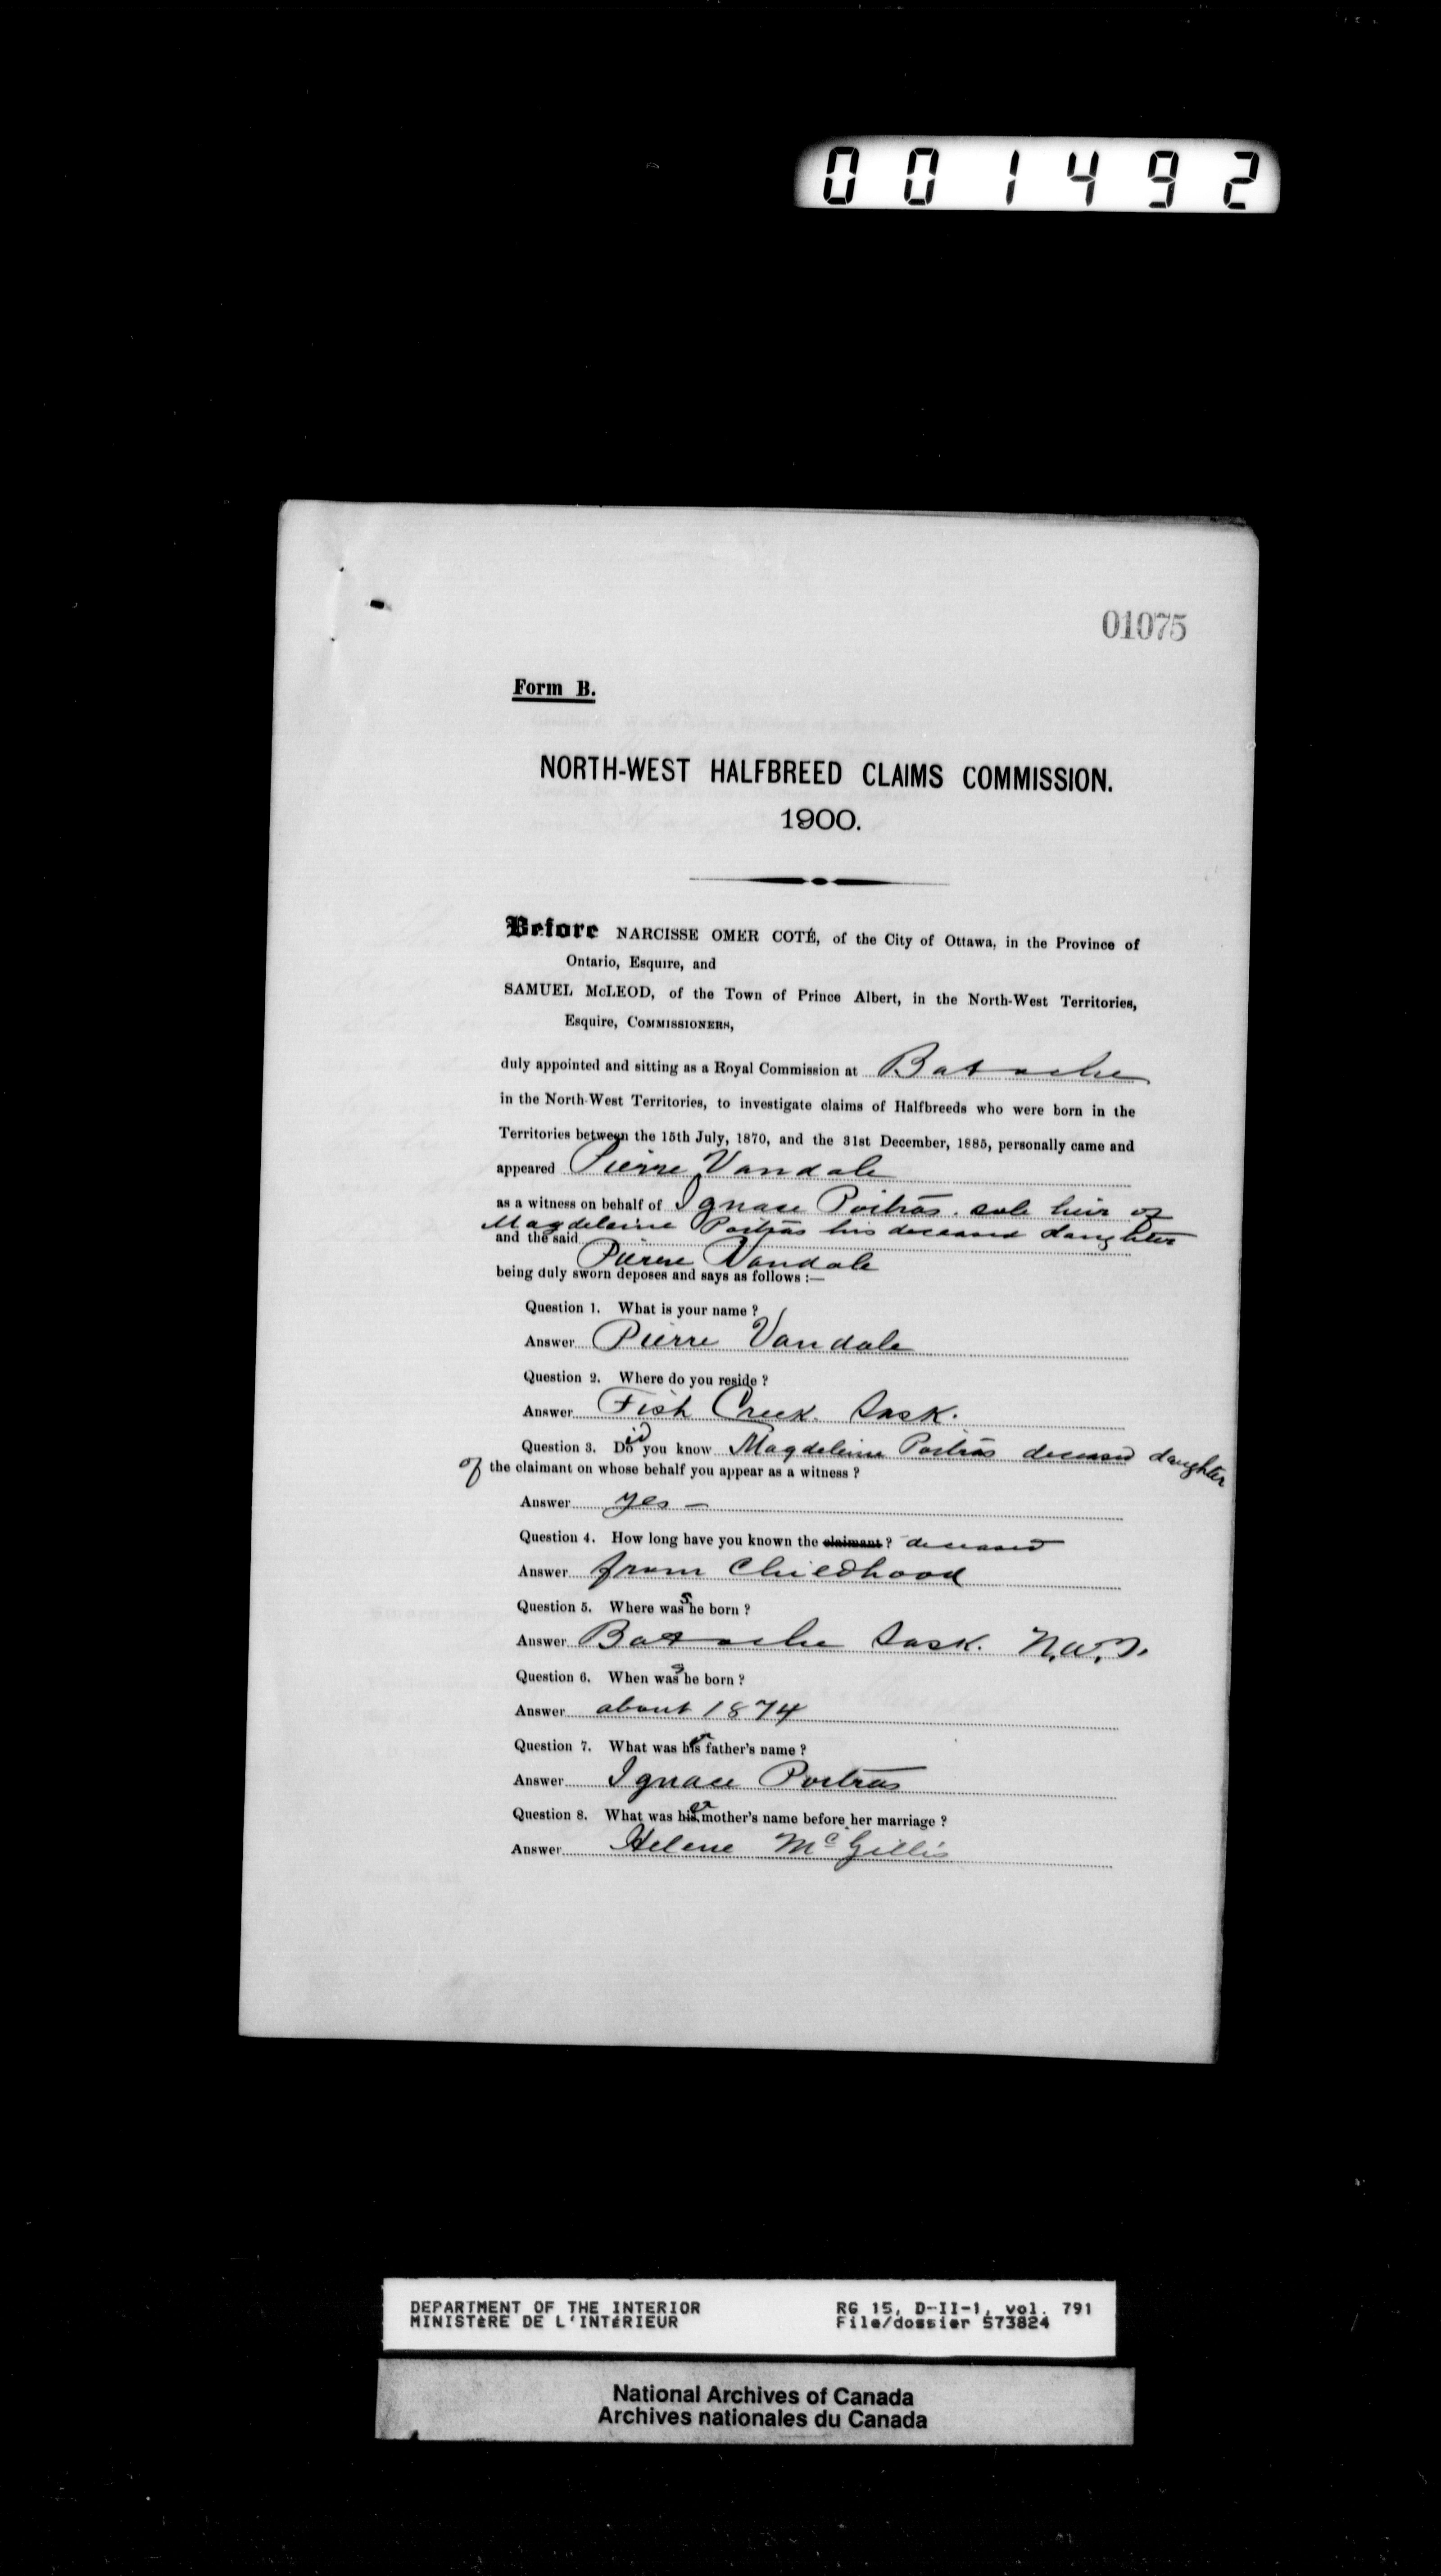 001492
01075
Form B.
NORTH-WEST HALFBREED CLAIMS COMMISSION.
1900.
Before NARCISSE OMER COTÉ, of the City of Ottawa, in the Province of
Ontario, Esquire, and
SAMUEL McLEOD, of the Town of Prince Albert, in the North-West Territories,
Esquire, COMMISSIONERS,
duly appointed and sitting as a Royal Commission at Batoche
in the North-West Territories, to investigate claims of Halfbreeds who were born in the
Territories between the 15th July, 1870, and the 31st December, 1885, personally came and
appeared Pierre Vandale
as a witness on behalf of Ignace Poitras. sole heir of
Magdeleine Poitras his deceased daughter
and the said Pierre Vandale
being duly sworn deposes and says as follows :—
Question 1. What is your name ?
Answer Pierre Vandale
Question 2. Where do you reside ?
Answer Fish Creek. Sask.
Question 3. Did you know Magdeleine Poitras deceased daughter
of the claimant on whose behalf you appear as a witness ?
Answer yes —
Question 4. How long have you known the claimant ? deceased
Answer from Childhood
Question 5. Where was she born ?
Answer Batoche Sask. N.W.T.
Question 6. When was she born ?
Answer about 1874
Question 7. What was her father's name ?
Answer Ignace Poitras
Question 8. What was her mother's name before her marriage ?
Answer Helene McGillis
DEPARTMENT OF THE INTERIOR RG 15, D-II-1, vol. 791
MINISTèRE DE L'INTéRIEUR File/dossier 573824
National Archives of Canada
Archives nationales du Canada